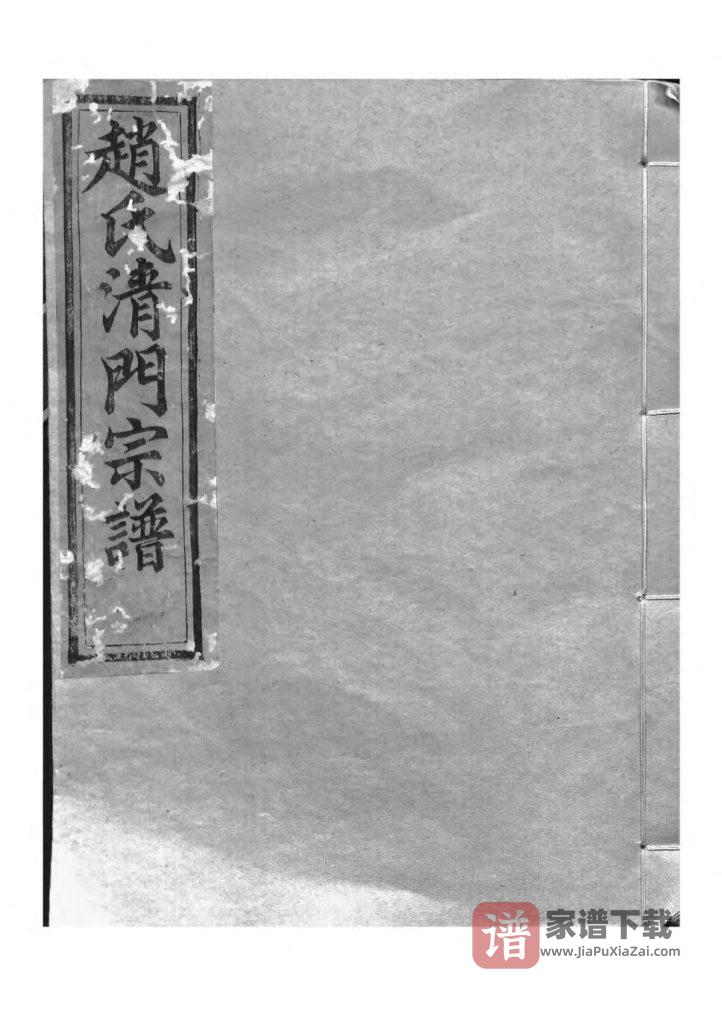 趙氏清門宗譜
谱
家谱下载
www.JiaPuXiaZai.com